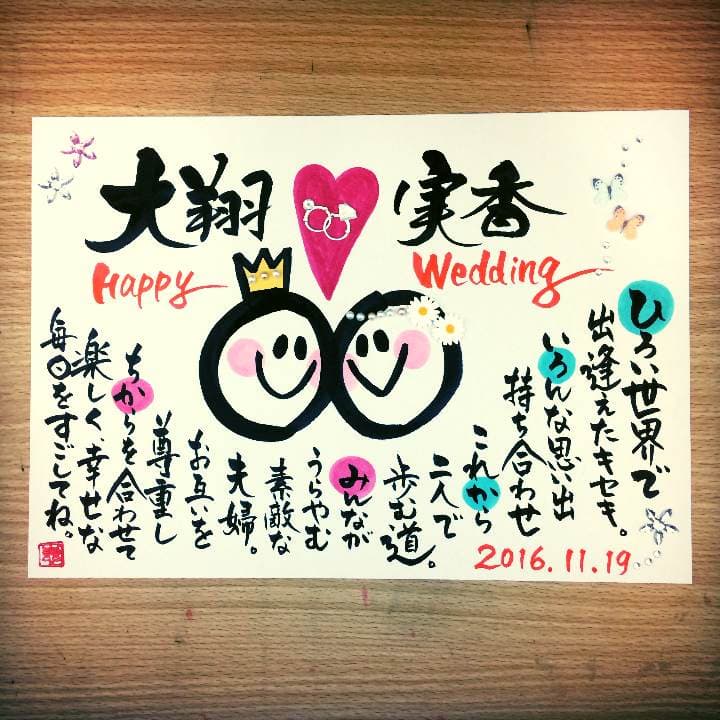 大翔 実香
Happy Wedding
ひろい世界で
出逢えたキセキ。
いろんな思い出
持ち合わせ
これから
二人で
歩む道。
みんなが
うらやむ
素敵な
夫婦。
お互いを
尊重し
ちからを合わせて
楽しく、幸せな
毎日をすごしてね。
2016.11.19